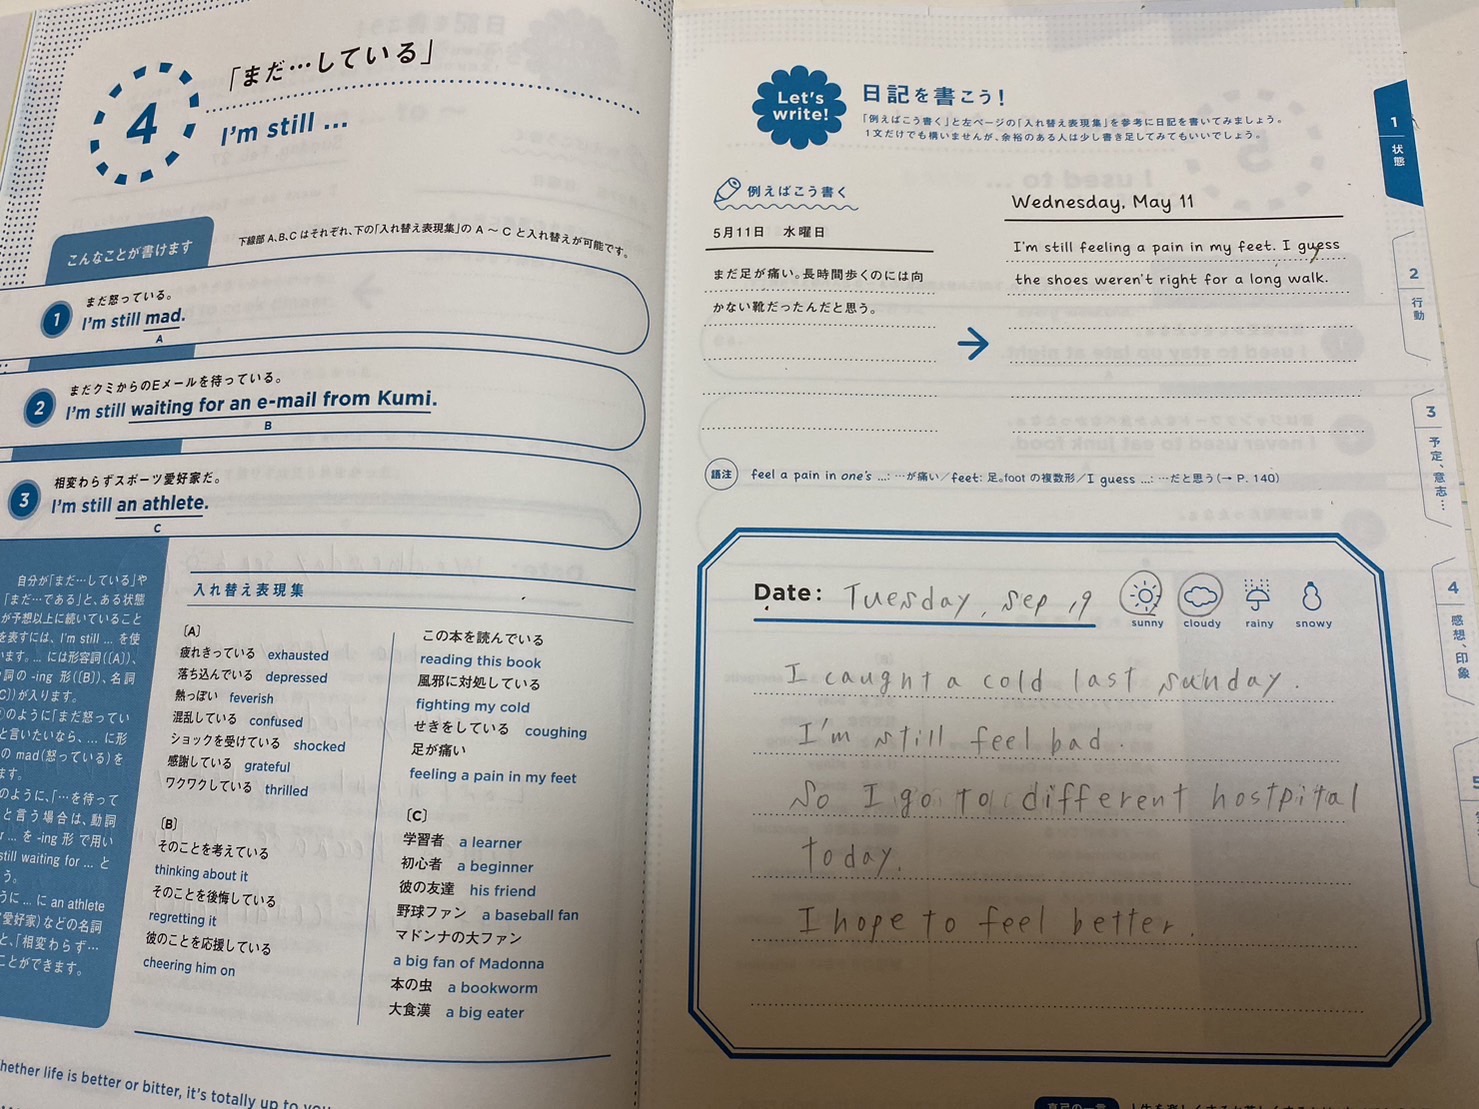 4
「まだ…している」
I'm still ...
こんなことが書けます
下線部 A、B、C はそれぞれ、下の「入れ替え表現集」の A ～ C と入れ替えが可能です。
1
まだ怒っている。
I'm still mad.
A
2
まだクミからのEメールを待っている。
I'm still waiting for an e-mail from Kumi.
B
3
相変わらずスポーツ愛好家だ。
I'm still an athlete.
C
自分が「まだ…している」や
「まだ…である」と、ある状態
が予想以上に続いていること
を表すには、I'm still ... を使
います。... には形容詞([A])、
詞の -ing 形([B])、名詞
C])が入ります。
のように「まだ怒ってい
と言いたいなら、... に形
の mad(怒っている)を
ます。
のように、「…を待って
と言う場合は、動詞
... を -ing 形 で用い
still waiting for ... と
う。
うに ... に an athlete
愛好家)などの名詞
と、「相変わらず…
ことができます。
入れ替え表現集
[A]
疲れきっている exhausted
落ち込んでいる depressed
熱っぽい feverish
混乱している confused
ショックを受けている shocked
感謝している grateful
ワクワクしている thrilled
[B]
そのことを考えている
thinking about it
そのことを後悔している
regretting it
彼のことを応援している
cheering him on
この本を読んでいる
reading this book
風邪に対処している
fighting my cold
せきをしている coughing
足が痛い
feeling a pain in my feet
[C]
学習者 a learner
初心者 a beginner
彼の友達 his friend
野球ファン a baseball fan
マドンナの大ファン
a big fan of Madonna
本の虫 a bookworm
大食漢 a big eater
hether life is better or bitter, it's totally up to
Let's
write!
日記を書こう!
「例えばこう書く」と左ページの「入れ替え表現集」を参考に日記を書いてみましょう。
1文だけでも構いませんが、余裕のある人は少し書き足してみてもいいでしょう。
例えばこう書く
5月11日 水曜日
まだ足が痛い。長時間歩くのには向
かない靴だったんだと思う。
Wednesday, May 11
I'm still feeling a pain in my feet. I guess
the shoes weren't right for a long walk.
語注 feel a pain in one's ...: …が痛い／feet: 足。foot の複数形／I guess ...: …だと思う(→ P. 140)
Date: Tuesday, Sep ,9
sunny cloudy rainy snowy
I caught a cold last sunday.
I'm still feel bad.
So I go to different hostpital
today.
I hope to feel better.
1
状態
2
行動
3
予定、意志…
4
感想、印象
5